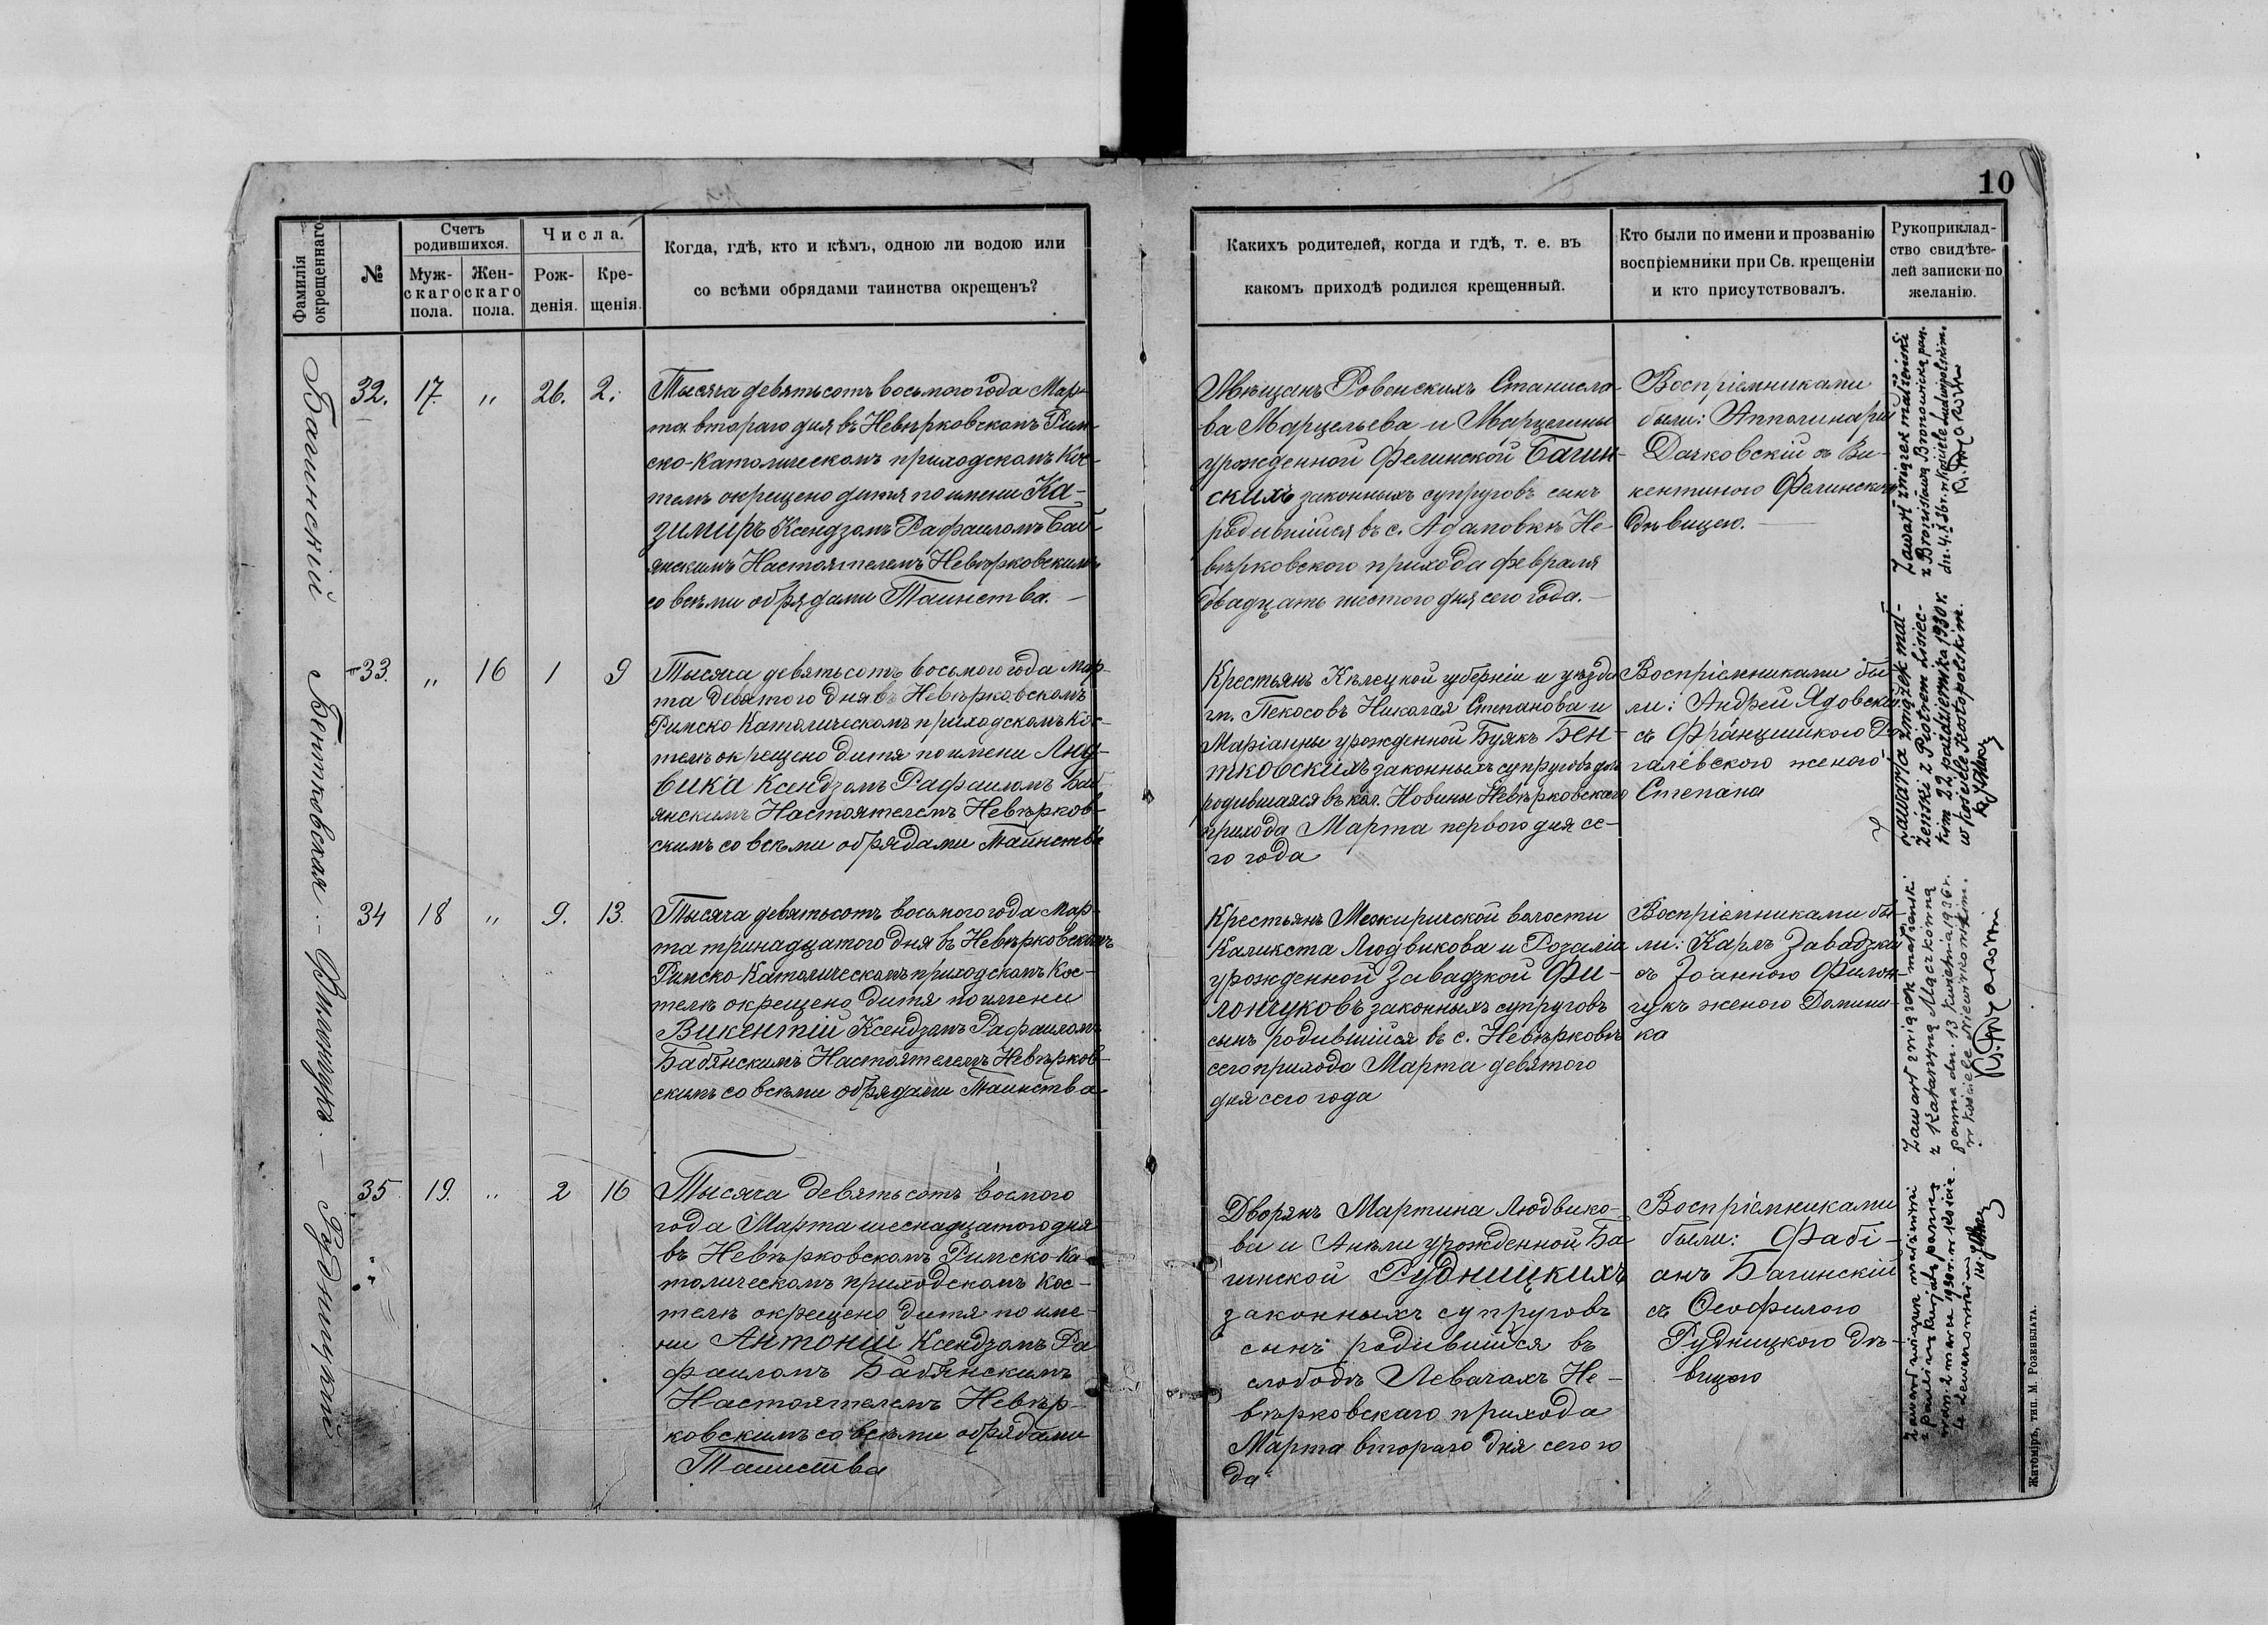 10
Фамилія
окрещеннаго
№
Счетъ
родившихся.
Муж-
скаго
пола.
Жен-
скаго
пола.
Числа.
Рож-
денія.
Кре-
щенія.
Когда, гдѣ, кто и кѣмъ, одною ли водою или
со всѣми обрядами таинства окрещенъ?
Какихъ родителей, когда и гдѣ, т. е. въ
какомъ приходѣ родился крещенный.
Кто были по имени и прозванію
воспріемники при Св. крещеніи
и кто присутствовалъ.
Рукоприклад-
ство свидѣте-
лей записки по
желанію.
Багинскій
32. 17. " 26. 2.
Тысяча девятьсотъ восьмого года Мар-
та второго дня въ Невѣрковскомъ Рим-
ско-Католическомъ приходскомъ Кос-
телѣ окрещено дитя по имени Ка-
зимиръ Ксендзомъ Рафаиломъ Баб-
янскимъ Настоятелемъ Невѣрковскимъ
со всѣми обрядами Таинства.
Мѣщанъ Ровенскихъ Станисла-
ва Марцельева и Марцелины
урожденной Фелинской Багин-
скихъ законныхъ супруговъ сынъ
родившійся въ с. Адамовкѣ Не-
вѣрковского прихода февраля
двадцать шестого дня сего года.
Воспріемниками
были: Апполинарій
Дачковскій съ Ви-
кентиною Фелинскою
дѣвицею.
Zawarł związek małżeński
z Bronisławą Bronowicką pan.
w kościele Ludwipolskim.
Бентковская
33. " 16 1 9
Тысяча девятьсотъ восьмого года Мар-
та девятого дня въ Невѣрковскомъ
Римско Католическомъ приходскомъ Кос-
телѣ окрещено дитя по имени Люд-
вика Ксендзомъ Рафаиломъ Баб-
янскимъ Настоятелемъ Невѣрков-
скимъ со всѣми обрядами Таинства
Крестьянъ Кѣлецкой губерніи и уѣзда
гм. Пекосовъ Николая Степанова и
Маріанны урожденной Буякъ Бен-
тковскихъ законныхъ супруговъ дочь
родившаяся въ кол. Новины Невѣрковскаго
прихода Марта первого дня се-
го года
Воспріемниками бы-
ли: Андрей Ядовскій
съ Францишкою Ро-
галевского женою
Степана
Zawarła związek mał-
żeński z Piotrem Lisiec-
kim 22 października 1930 r.
w kościele Kostopolskim.
Филончукъ
34 18 " 9. 13.
Тысяча девятьсотъ восьмого года Мар-
та тринадцатого дня въ Невѣрковскомъ
Римско-Католическомъ приходскомъ Кос-
телѣ окрещено дитя по имени
Викентій Ксендзомъ Рафаиломъ
Бабянскимъ Настоятелемъ Невѣрков-
скимъ со всѣми обрядами Таинства
Крестьянъ Межиричской волости
Каликста Людвикова и Розаліи
урожденной Завадзкой Фи-
лончуковъ законныхъ супруговъ
сынъ родившійся въ с. Невѣрковѣ
сего прихода Марта девятого
дня сего года
Воспріемниками бы-
ли: Карлъ Завадзкій
съ Іоанною Филон-
чукъ женою Домини-
ка
Zawarł związek małżeński
z Katarzyną Mączkówną
panną dn. 13 kwietnia 1936 r.
w kościele Niewirkowskim.
Рудницкій
35 19. " 2 16
Тысяча девятьсотъ восмого
года Марта шеснадцатого дня
въ Невѣрковскомъ Римско-Ка-
толическомъ приходскомъ Кос-
телѣ окрещено дитя по име-
ни Антоній Ксендзомъ Ра-
фаиломъ Бабянскимъ
Настоятелемъ Невѣр-
ковскимъ со всѣми обрядами
Таинства
Дворянъ Мартина Людвико-
ва и Анѣли урожденной Ба-
гинской Рудницкихъ
законныхъ супруговъ
сынъ родившійся въ
слободѣ Левачахъ Не-
вѣрковскаго прихода
Марта второго дня сего го
да
Воспріемниками
были: Фабі-
анъ Багинскій
съ Ѳеофилою
Рудницкого дѣ-
вицею
Zawarł związek małżeński
z Pauliną panną
Житоміръ, тип. М. Розенблата.